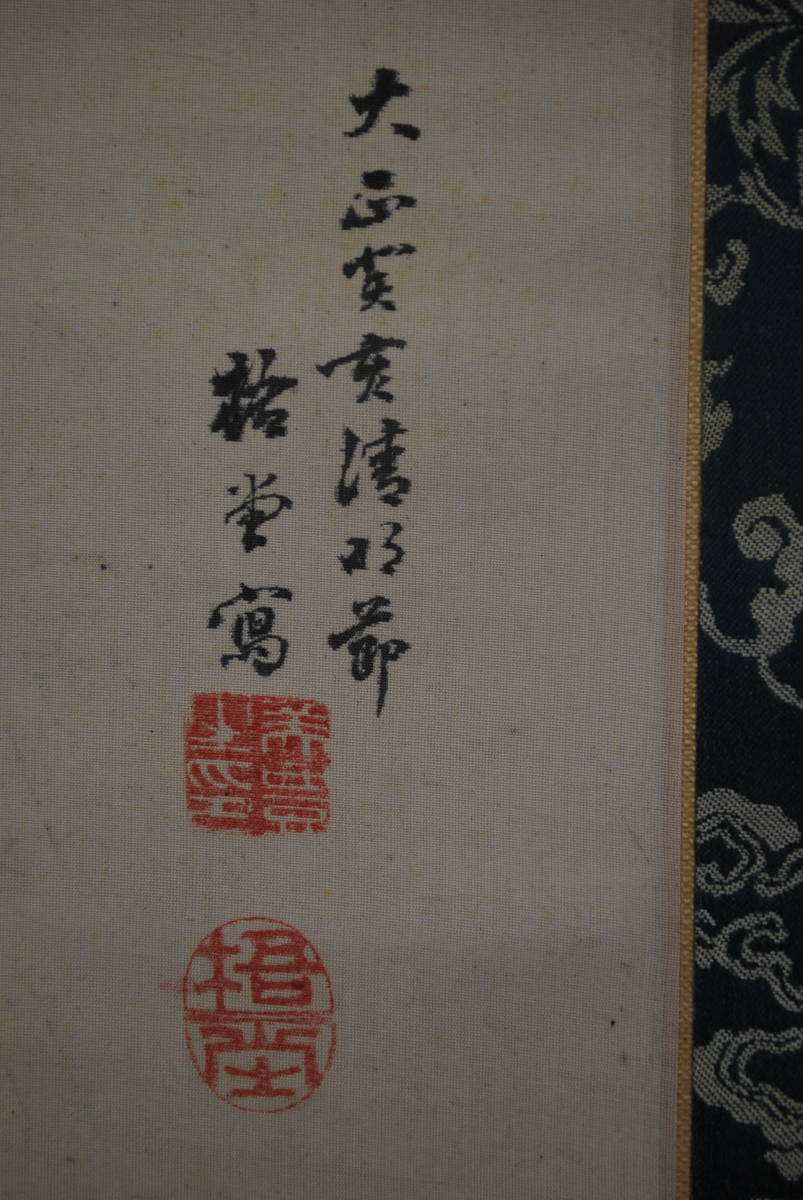 大正癸亥清明節
梧堂寫
梧堂